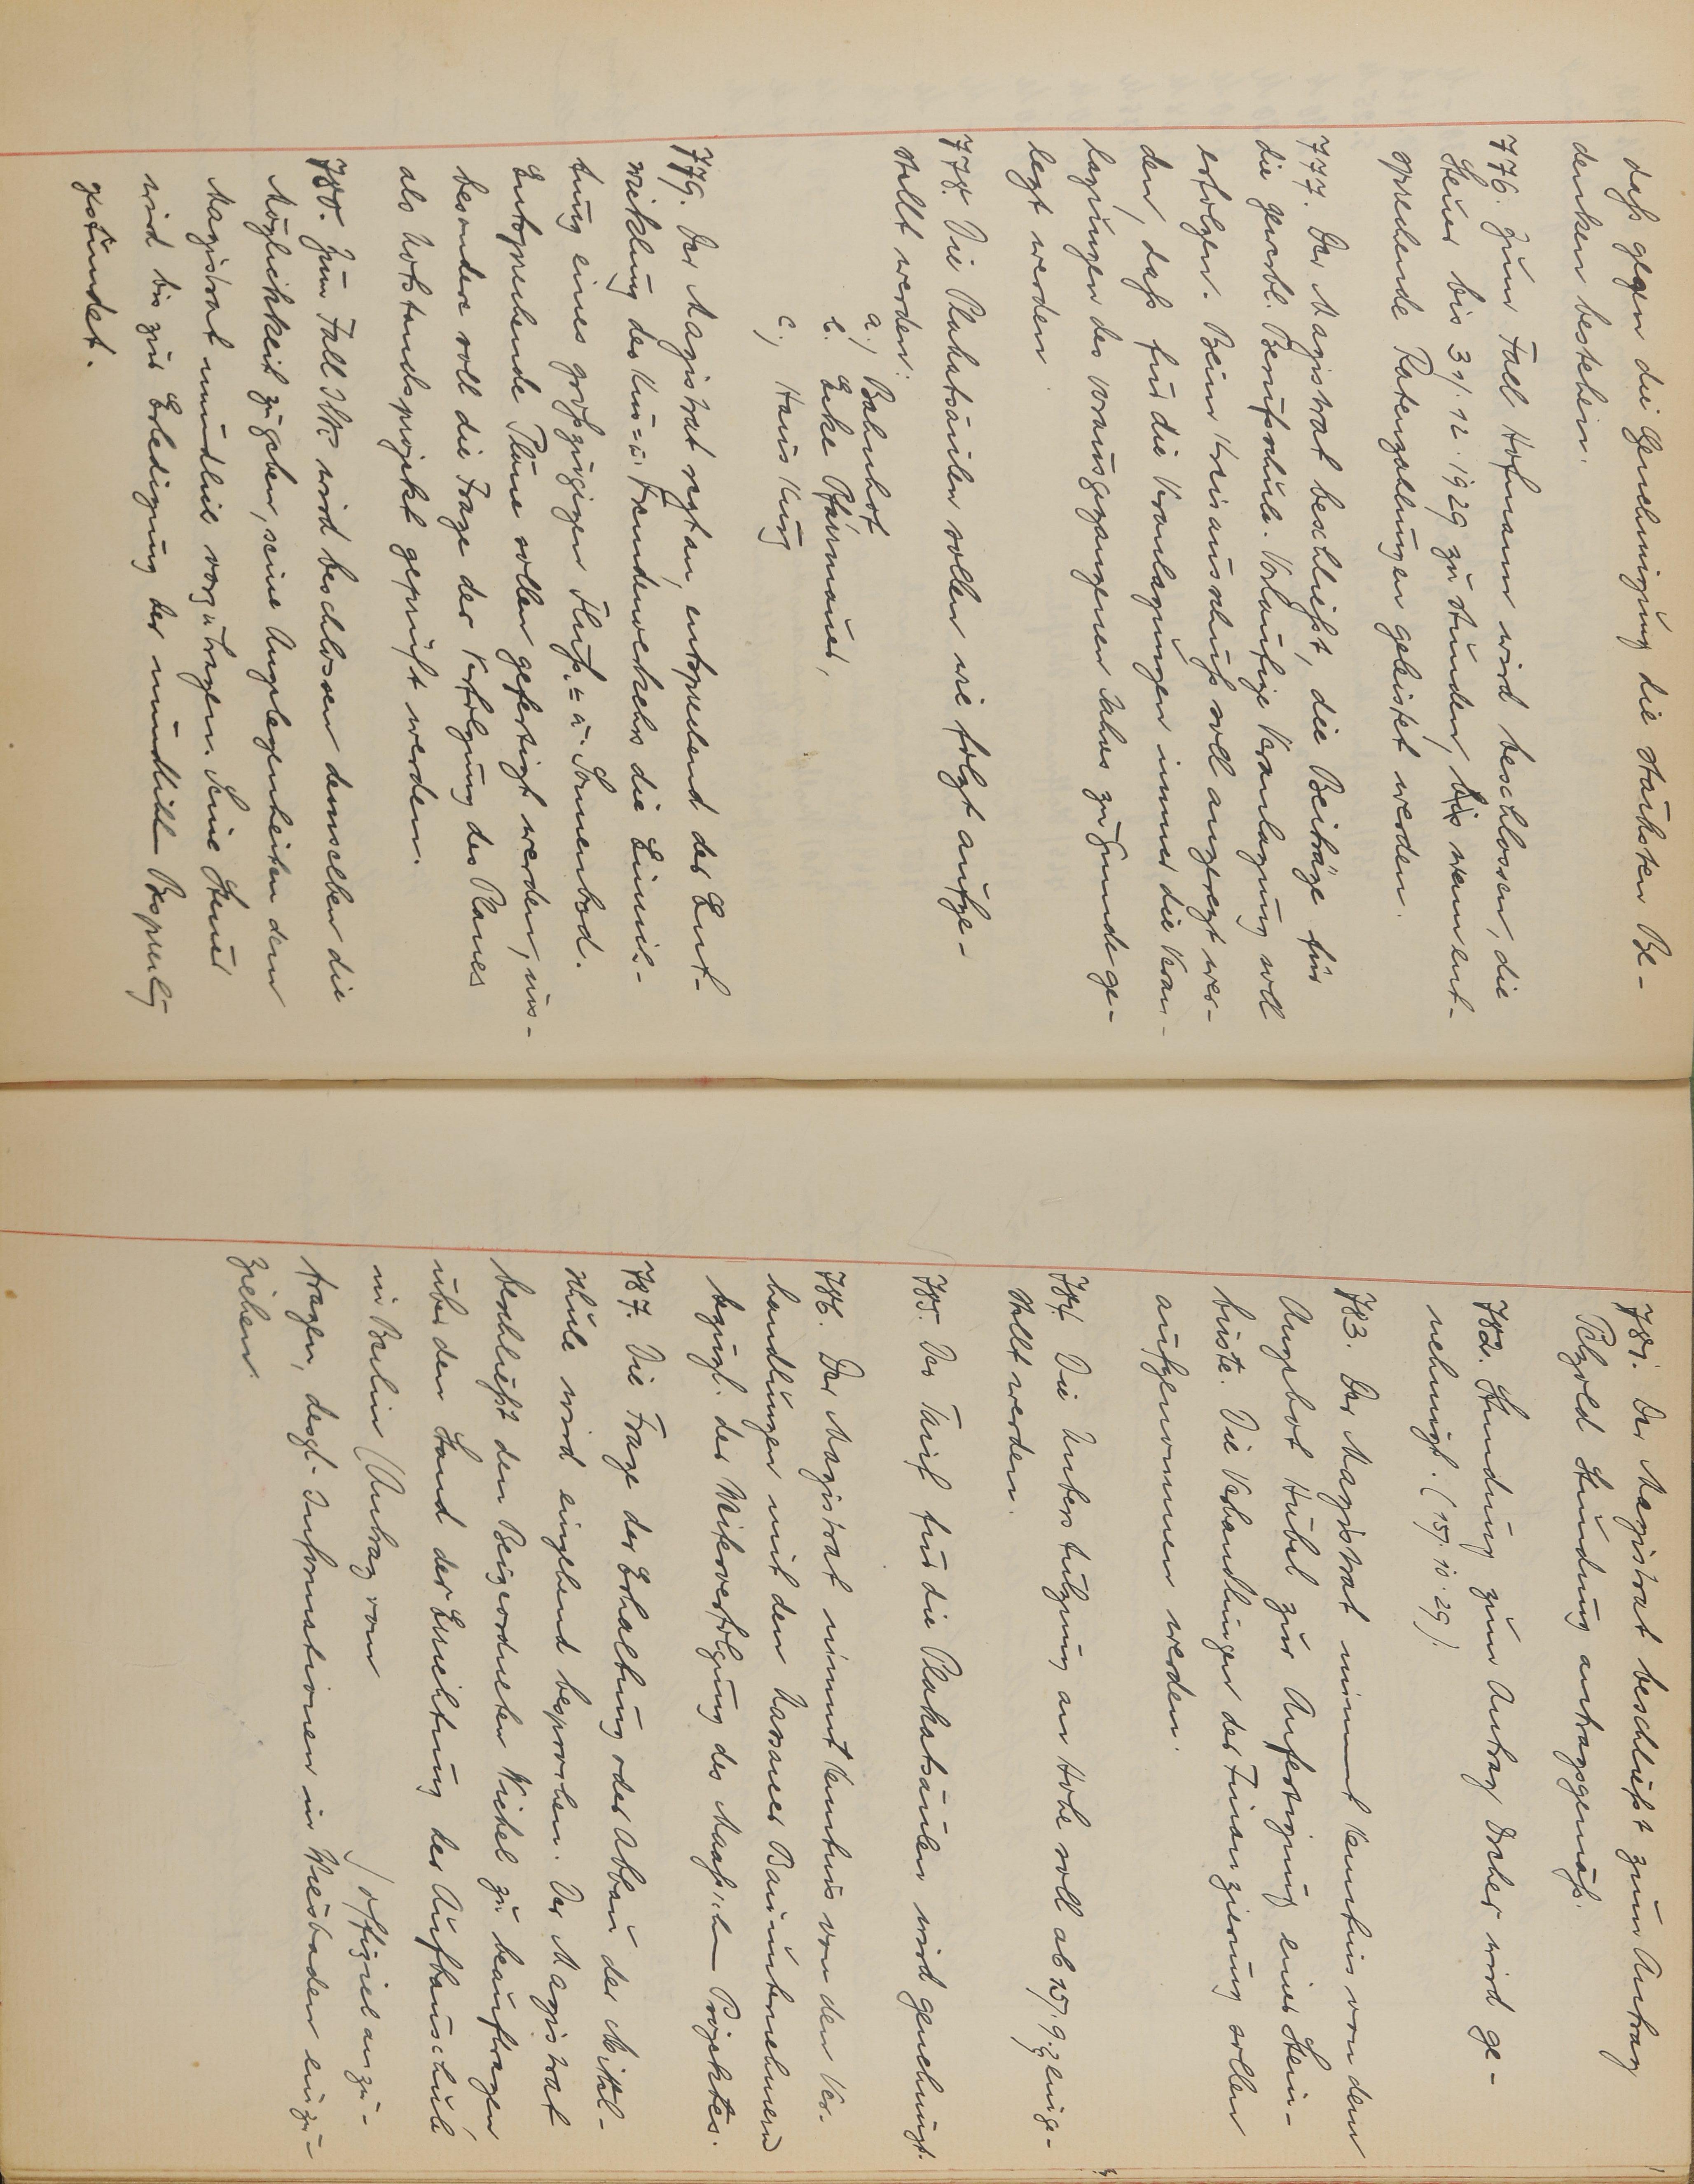 daß gegen die Genehmigung die stärksten Be-
denken bestehen.
776. Zum Fall Hofmann wird beschlossen, die
Steuer bis 31.12.1929 zu stunden, wenn ent-
sprechende Ratenzahlungen geleistet werden.
777. Der Magistrat beschließt, die Beiträge für
die gewerbl. Berufsschule. Vorläufige Veranlagung soll
erfolgen. Beim Kreisausschuß soll angeregt wer-
den, daß für die Veranlagungen immer die Veran-
lagungen des vorausgegangenen Jahres zu Grunde ge-
legt werden.
778. Die Plakatsäulen sollen wie folgt aufge-
stellt werden:
a.) Bahnhof
b. Ecke Pfarrmauer,
c.) Haus Kurz
779. Der Magistrat regt an, entsprechend der Ent-
wicklung des Kur= u. Fremdenverkehrs die Einrich-
tung eines großzügigen Fluß.= u. Sonnenbad.
Entsprechende Pläne sollen gefertigt werden, ins-
besondere soll die Frage der Verfolgung des Planes
als Notstandsprojekt geprüft werden.
780. Zum Fall wird beschlossen demselben die
Möglichkeit zu geben, seine Angelegenheiten dem
Magistrat mündlich vorzutragen. Seine Steuer
wird bis zur Erledigung der mündlichen Besprechg
gestundet.
781. Der Magistrat beschließt zum Antrag
Petzold Stundung antragsgemäß.
782. Stundung zum Antrag Docher wird ge-
nehmigt. (15.10.29).
783. Der Magistrat nimmt Kenntnis von dem
Angebot Hübel zur Anfertigung einer Stein-
büste. Die Verhandlungen der Finanzierung sollen
aufgenommen werden.
784. Die Unterstützung an Hohe soll ab 15.9. einge-
stellt werden.
785. Der Tarif für die Plakatsäulen wird genehmigt.
786. Der Magistrat nimmt Kenntnis von den Ver-
handlungen mit dem Nassauer Bauunternehmern
bezügl. der Weiterverfolgung des Projektes.
787. Die Frage der Erhaltung oder Abbau der Mittel-
schule wird eingehend besprochen. Der Magistrat
beschließt den Beigeordneten Wickel zu beauftragen
über den Stand der Errichtung der Aufbauschule
in Berlin (Antrag vom / offiziel anzu-
fragen, desgl. Informationen in Wiesbaden einzu-
ziehen.